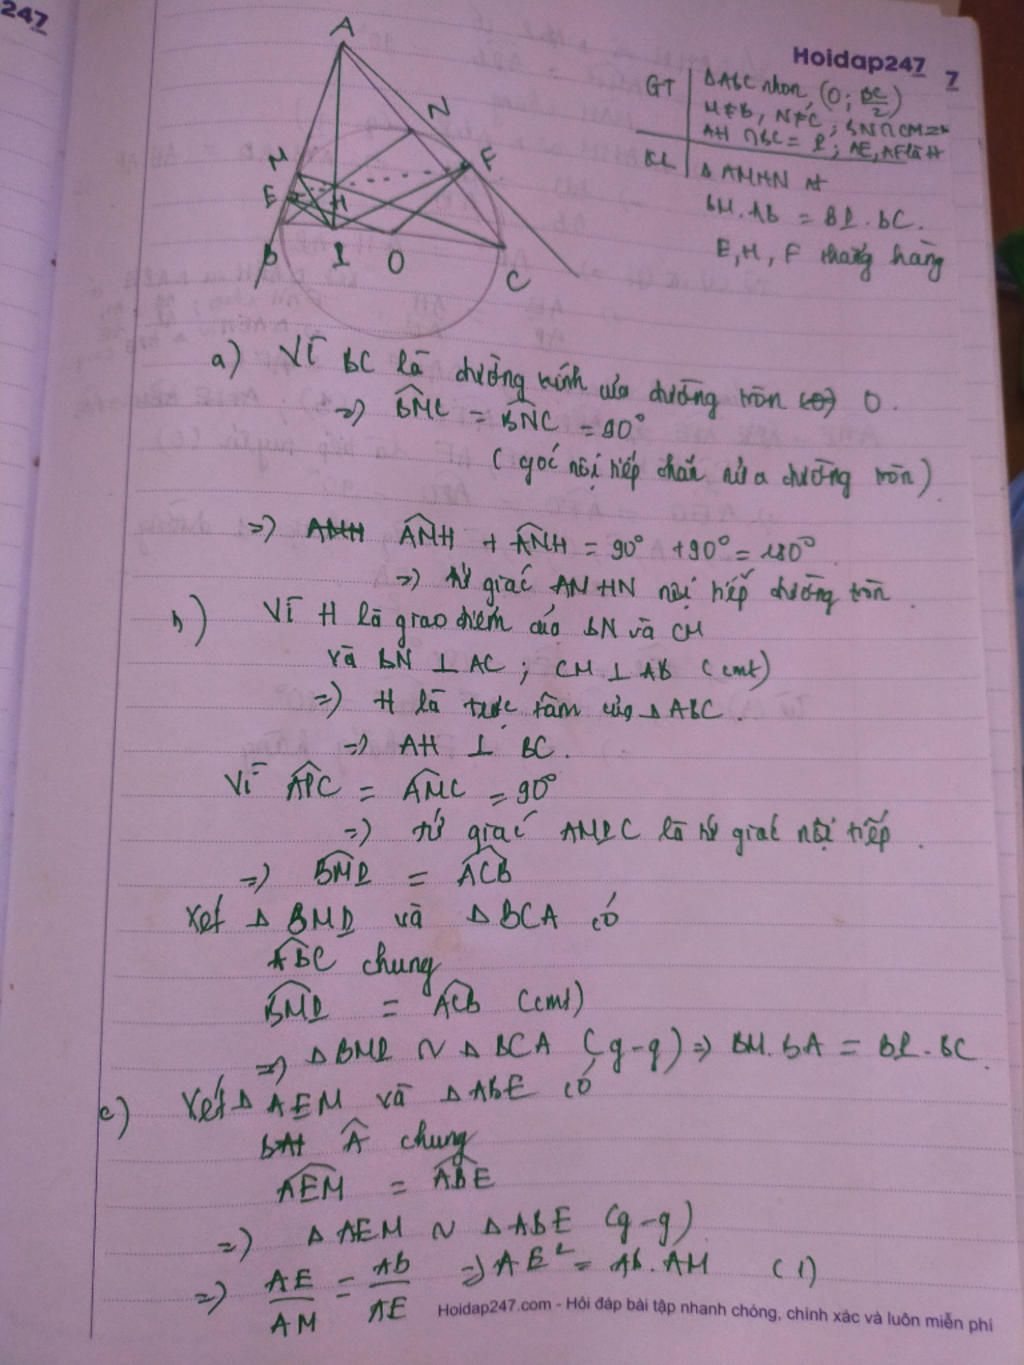 247
Hoidap247
7
A
N
M
F
E
H
B
I
O
C
GT
ΔABC nhọn (O; BC/2)
M≠B, N≠C; BN∩CM=H
AH ∩ BC = I; AE, AF là tt
KL
ΔAMHN nt
BM.AB = BI.BC.
E, H, F thẳng hàng
a) Vì BC là đường kính của đường tròn O.
=> BMC = BNC = 90°
(góc nội tiếp chắn nửa đường tròn)
=> AMH + ANH = 90° + 90° = 180°
=> tứ giác AMHN nội tiếp đường tròn.
b) Vì H là giao điểm của BN và CM
và BN ⊥ AC; CM ⊥ AB (cmt)
=> H là trực tâm của ΔABC.
=> AH ⊥ BC.
Vì AIC = AMC = 90°
=> tứ giác AMIC là tứ giác nội tiếp.
=> BMI = ACB
Xét Δ BMI và Δ BCA có
ABC chung
BMI = ACB (cmt)
=> Δ BMI ~ Δ BCA (g-g) => BM.BA = BI.BC
c) Xét Δ AEM và Δ ABE có
A chung
AEM = ABE
=> Δ AEM ~ Δ ABE (g-g)
=> AE/AM = AB/AE => AE² = AB.AM (1)
Hoidap247.com - Hỏi đáp bài tập nhanh chóng, chính xác và luôn miễn phí